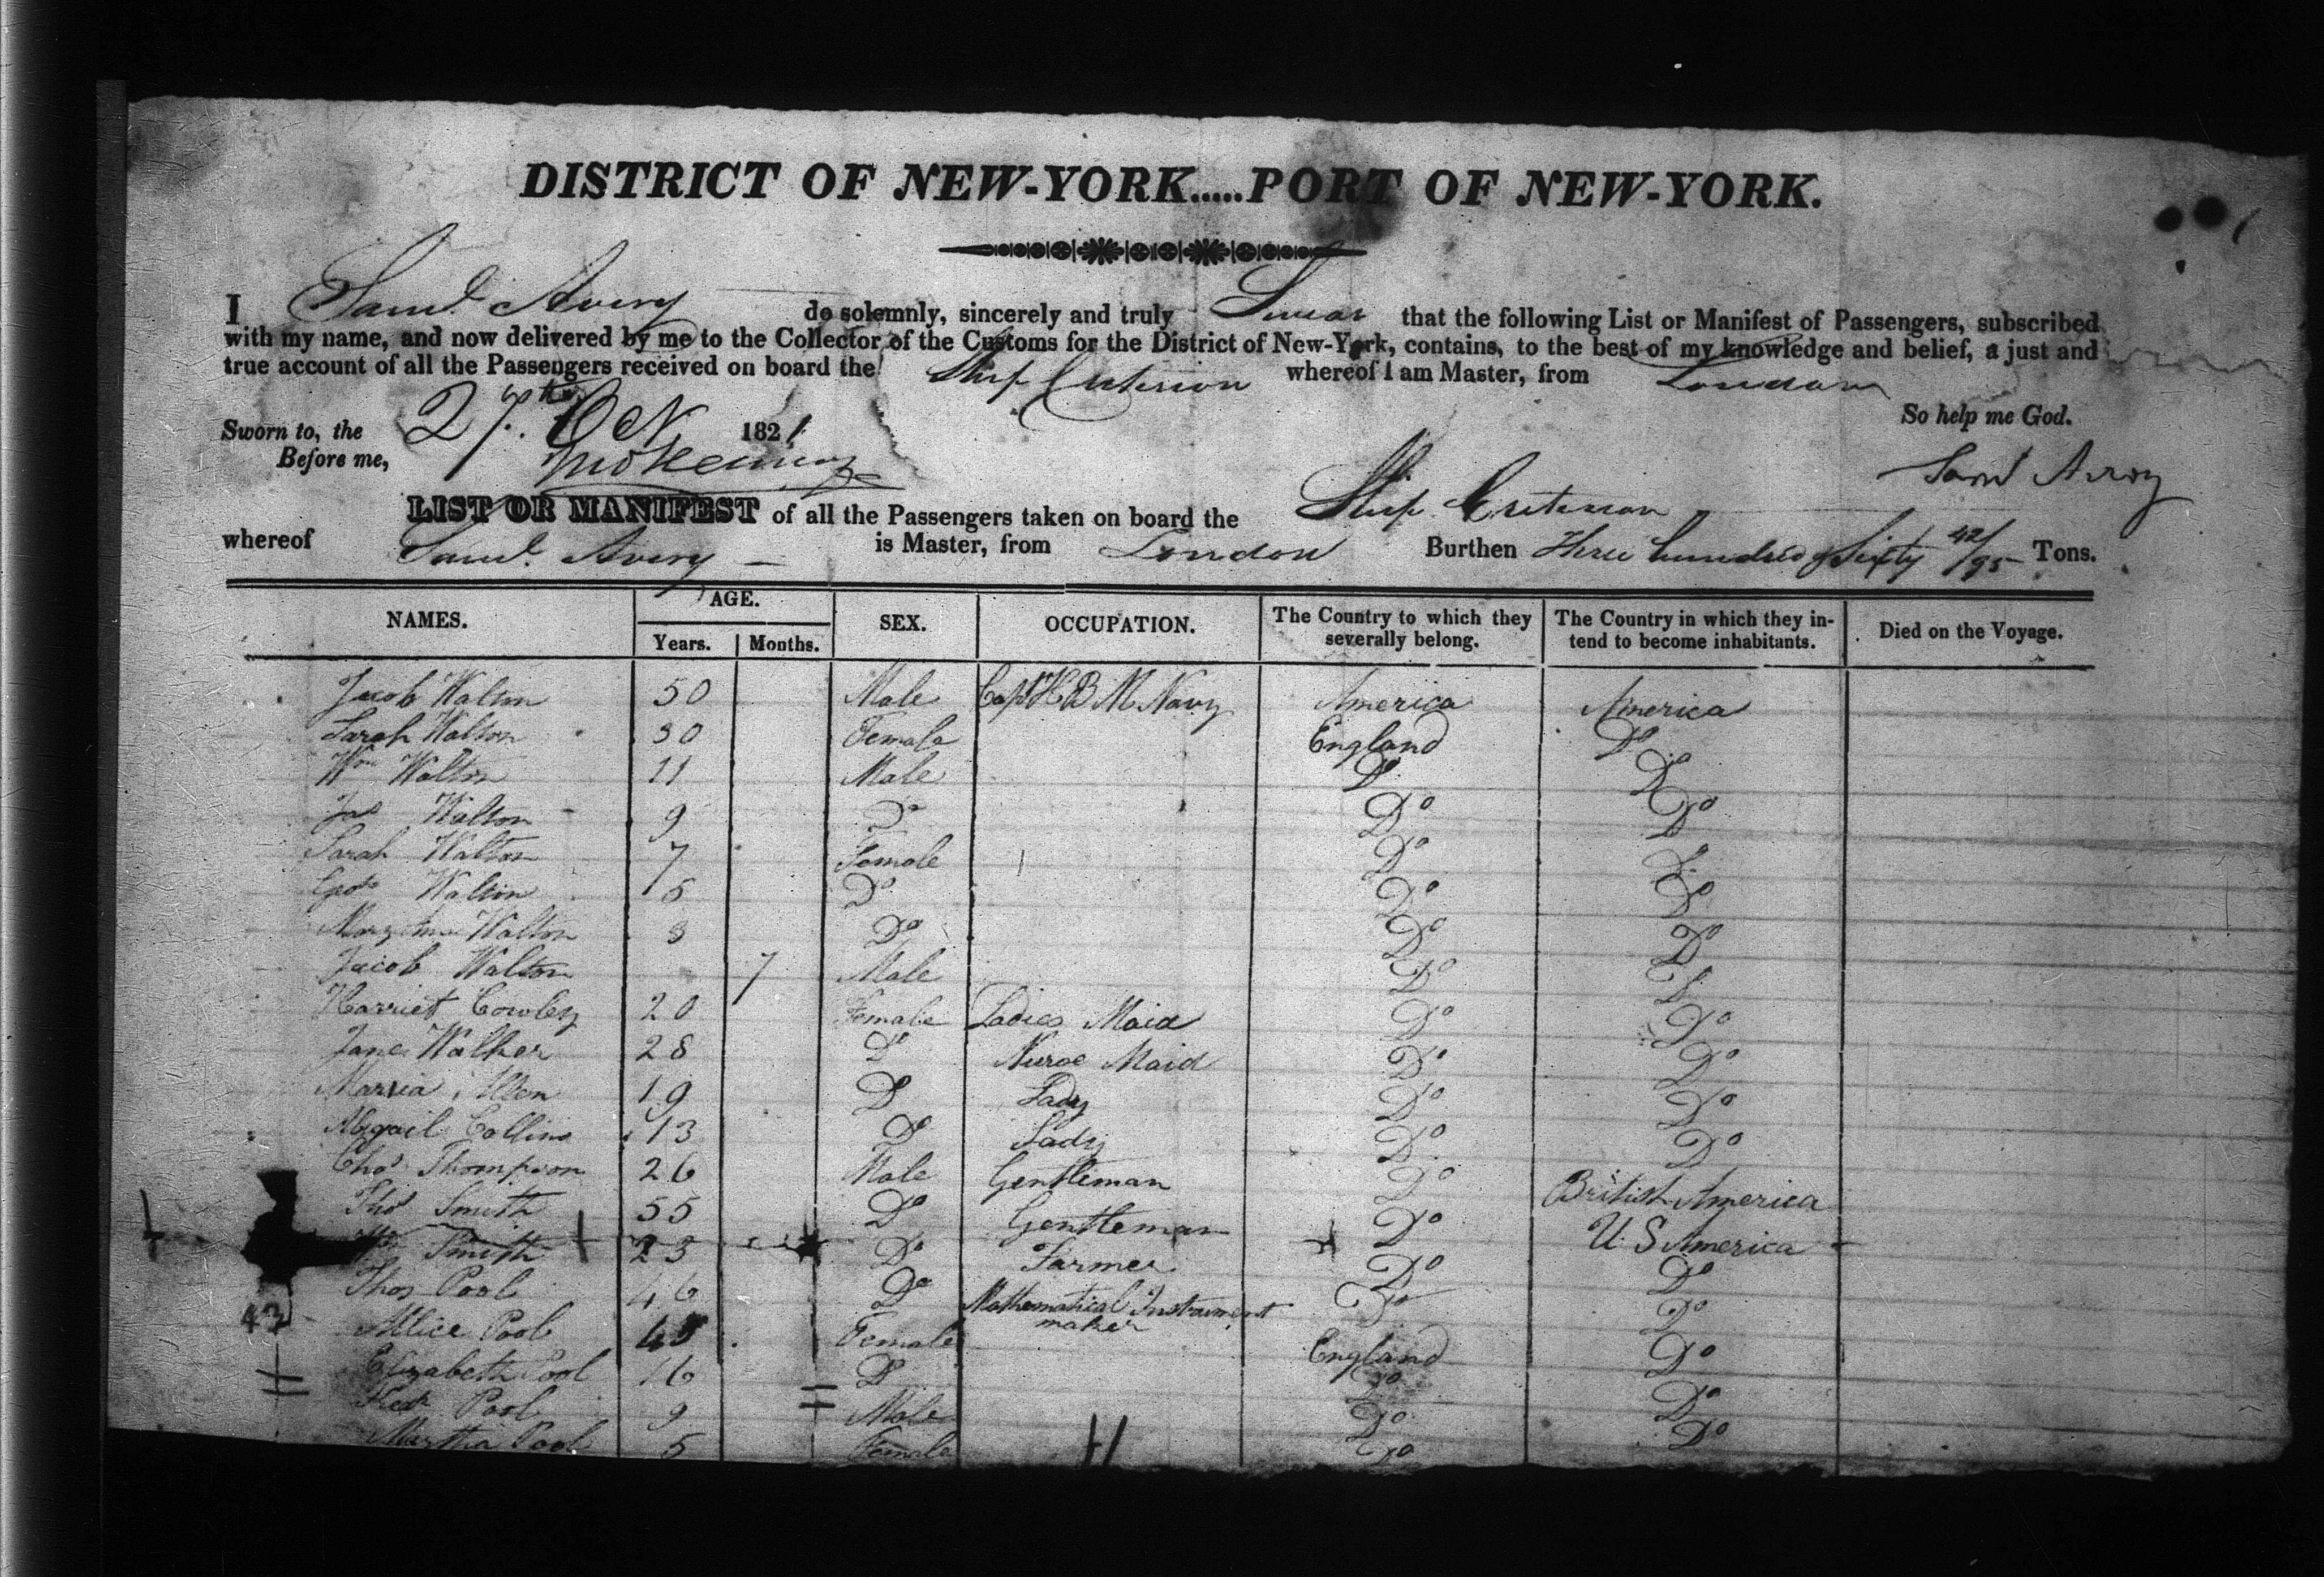 DISTRICT OF NEW-YORK.....PORT OF NEW-YORK.
I Saml. Avery do solemnly, sincerely and truly Swear that the following List or Manifest of Passengers, subscribed
with my name, and now delivered by me to the Collector of the Customs for the District of New-York, contains, to the best of my knowledge and belief, a just and
true account of all the Passengers received on board the Ship Criterion whereof I am Master, from London
So help me God.
Sworn to, the 27th Oct 1821
Before me,
Saml Avery
LIST OR MANIFEST of all the Passengers taken on board the Ship Criterion
whereof Saml. Avery is Master, from London Burthen Three hundred & Sixty 42/95 Tons.
NAMES. AGE. Years. Months. SEX. OCCUPATION. The Country to which they severally belong. The Country in which they intend to become inhabitants. Died on the Voyage.
Jacob Walton 50 Male Capt H B M Navy America America
Sarah Walton 30 Female England Do
Wm Walton 11 Male Do Do
Jas Walton 9 Do Do Do
Sarah Walton 7 Female Do Do
Walton 5 Do Do Do
Mary Ann Walton 3 Do Do Do
Jacob Walton 7 Male Do Do
Harriet Cowley 20 Female Ladies Maid Do Do
Jane Walker 28 Do Nurse Maid Do Do
Marria Allen 19 Do Lady Do Do
Abigail Collins 13 Do Lady Do Do
Chas Thompson 26 Male Gentleman Do British America
Thos Smith 55 Do Gentleman Do U. S America
Smith 23 Do Farmer Do Do
Thos Pool 46 Do Mathematical Instrument maker Do Do
Allice Pool 45 Female England Do
Elizabeth Pool 16 Do Do Do
Fredk Pool 9 Male Do Do
Martha Pool 5 Female Do